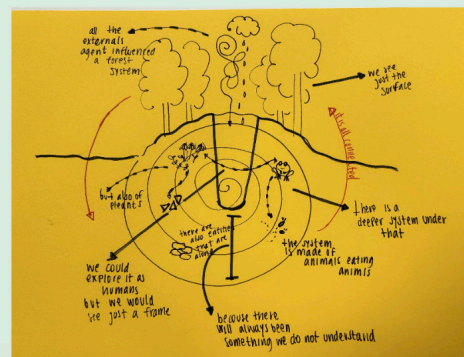 all the
externals
agent influenced
a forest
system
we see
just the
surface
it is all connected
but also of
pleants
there is a
deeper system under
that
there are
also entities
that are
along
the system
is made of
animals eating
animls
we could
explore it as
humans
but we would
see just a frame
becouse there
will always been
something we do not understand